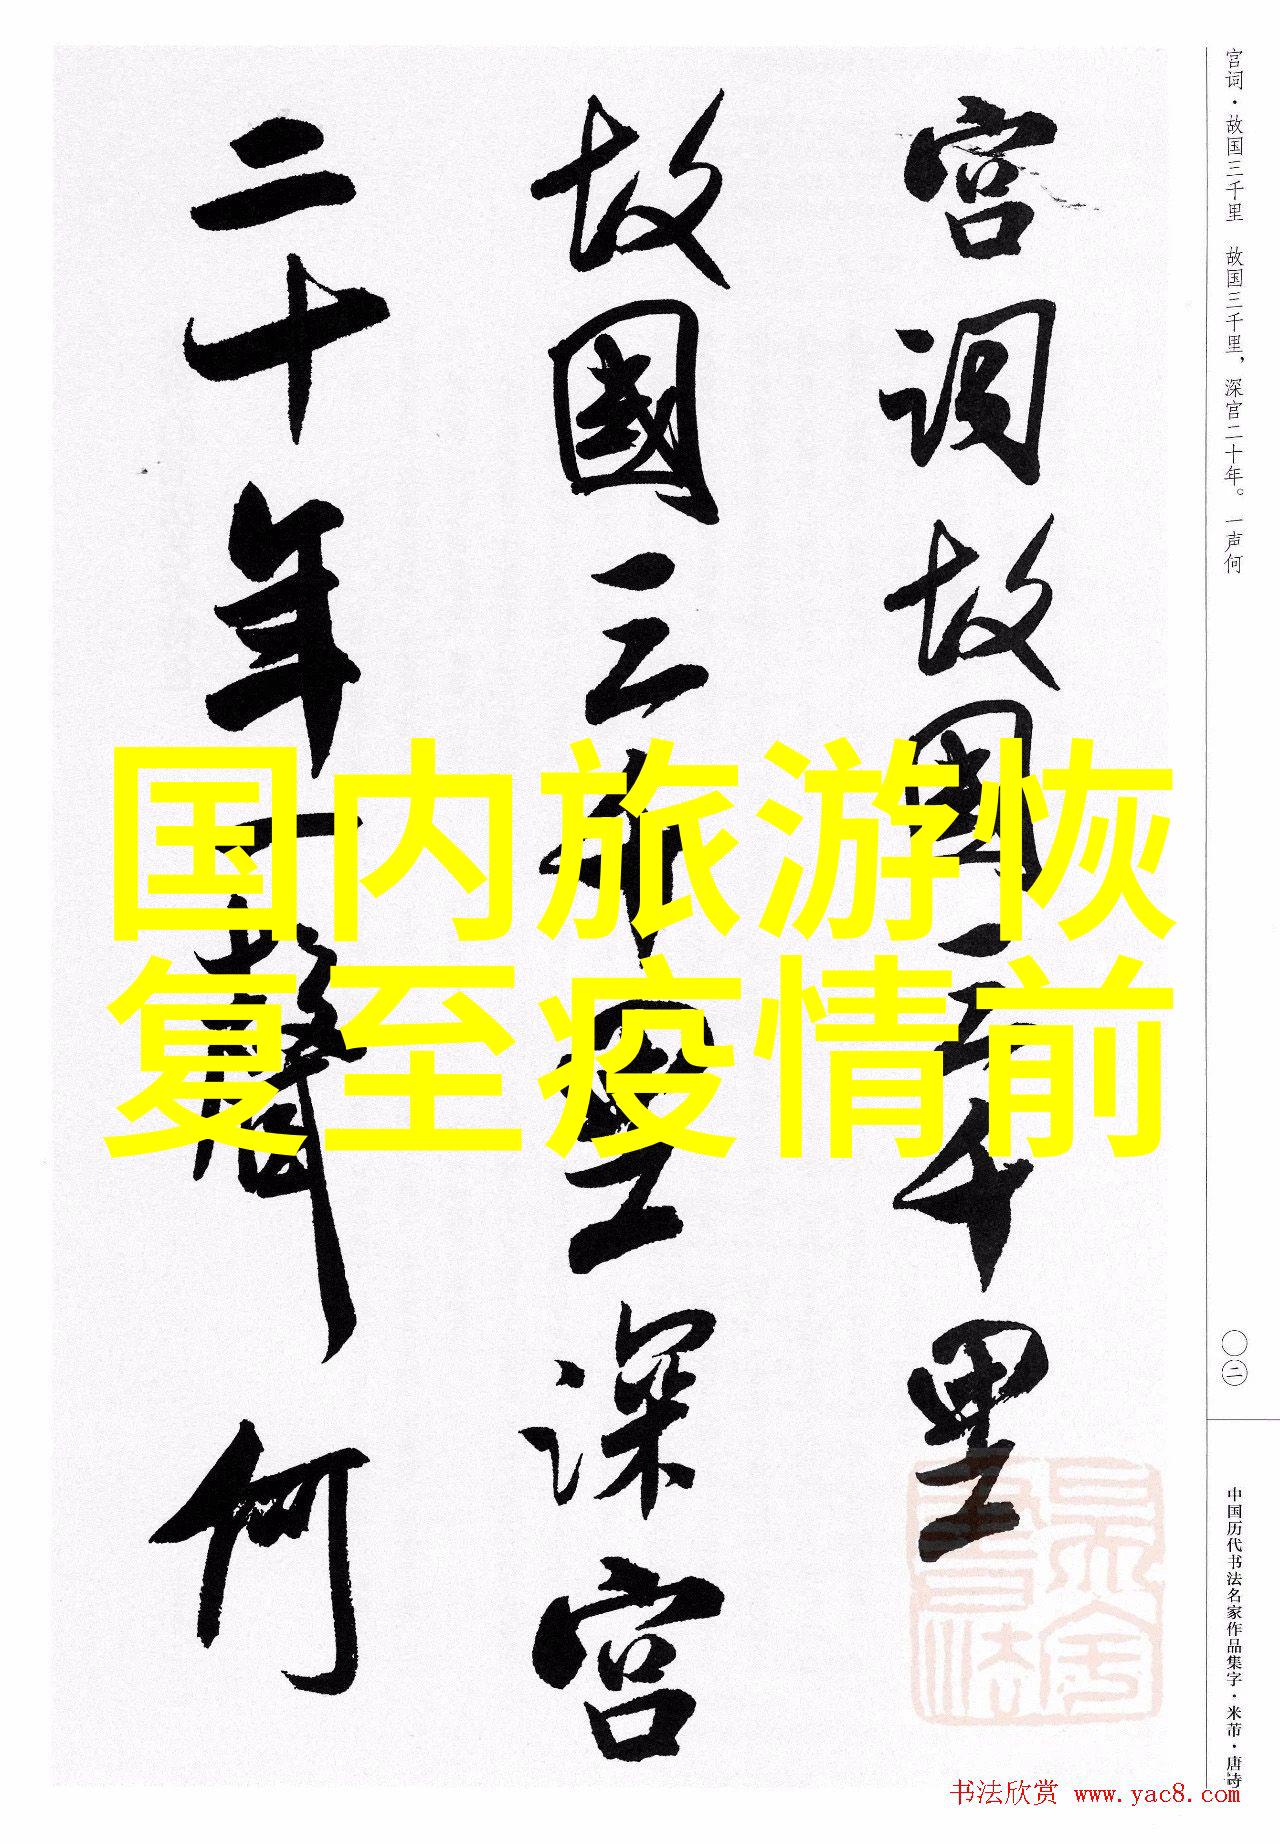 宫词·故国三千里　故国三千里，深宫二十年。一声何
〇二
中国历代书法名家作品集字·米芾·唐诗
宫词故國三千里
故國三千里深宫
二十年一聲何
国内旅游恢
复至疫情前
书法欣赏 www.yac8.com